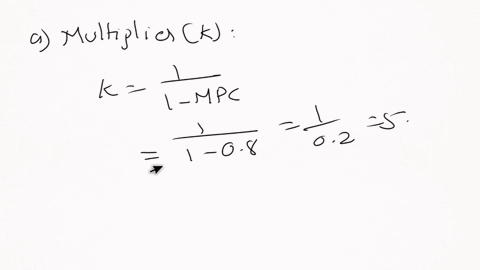 a) Multiplier (k) :
k = 1 / 1 - MPC
= 1 / 1 - 0.8 = 1 / 0.2 = 5.